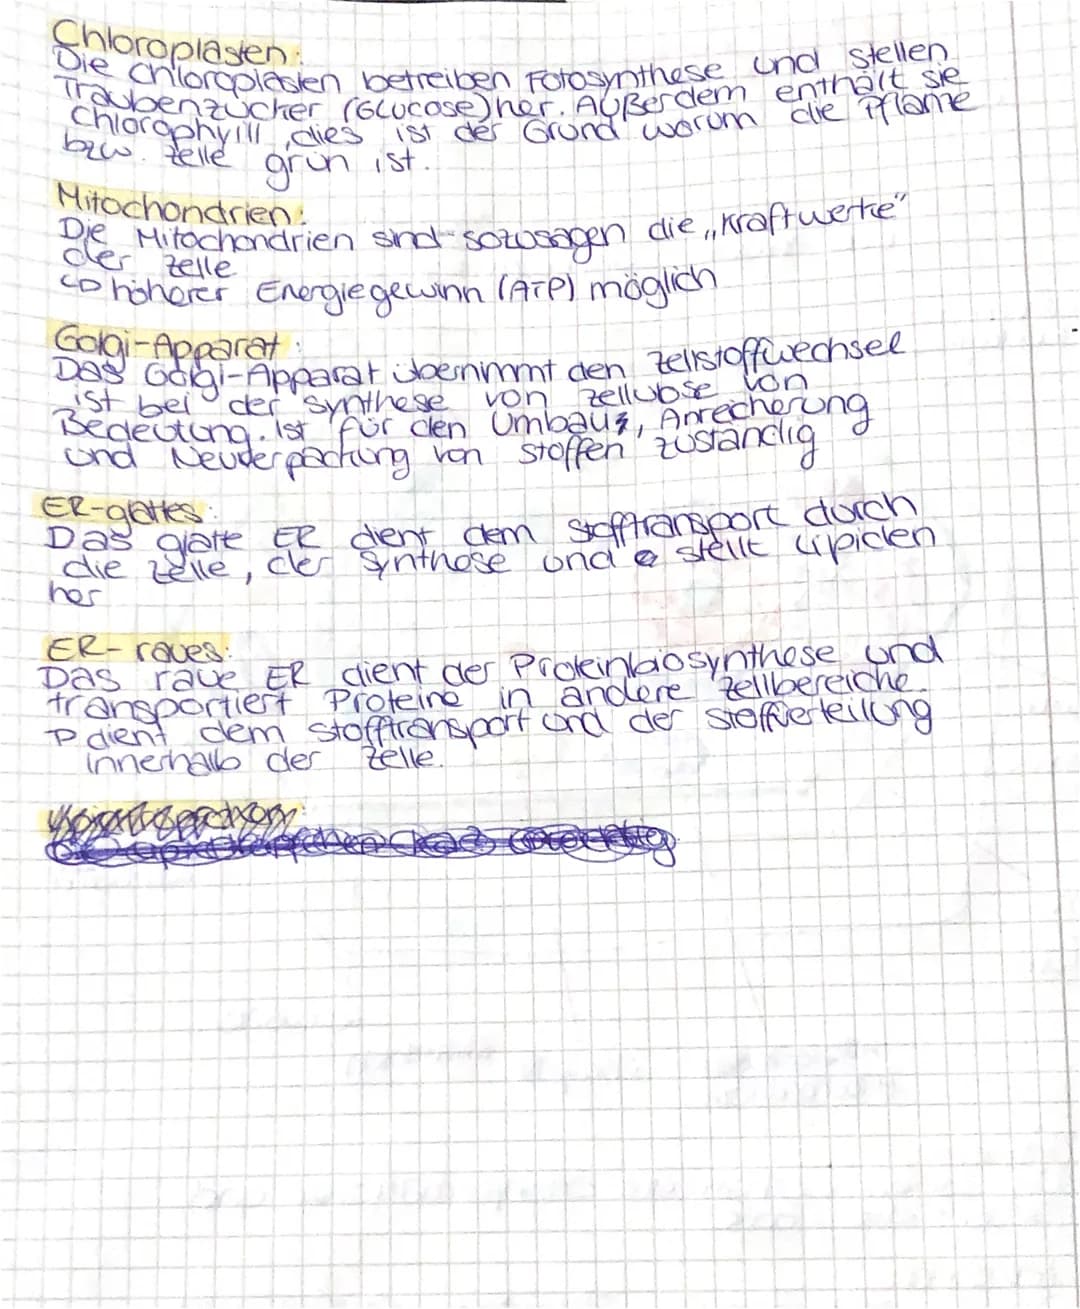 Chloroplasten:
Die Chloroplasten betreiben Fotosynthese und stellen
Traubenzucker (Glucose) her. Außerdem enthält sie
Chlorophyill, dies ist der Grund warum die Pflanze
bzw. Zelle grün ist.
Mitochondrien:
Die Mitochondrien sind sozusagen die „Kraftwerke"
der Zelle
↳ höherer Energiegewinn (ATP) möglich
Golgi-Apparat:
Das Golgi-Apparat übernimmt den Zellstoffwechsel
ist bei der Synthese von Zellulose von
Bedeutung. Ist für den Umbau, Anreicherung
und Neuverpackung von Stoffen zuständig
ER-glattes:
Das glatte ER dient dem Stofftransport durch
die Zelle, der Synthese und stellt Lipiden
her
ER-raues:
Das raue ER dient der Proteinbiosynthese und
transportiert Proteine in andere Zellbereiche.
↳ dient dem Stofftransport und der Stoffverteilung
innerhalb der Zelle.